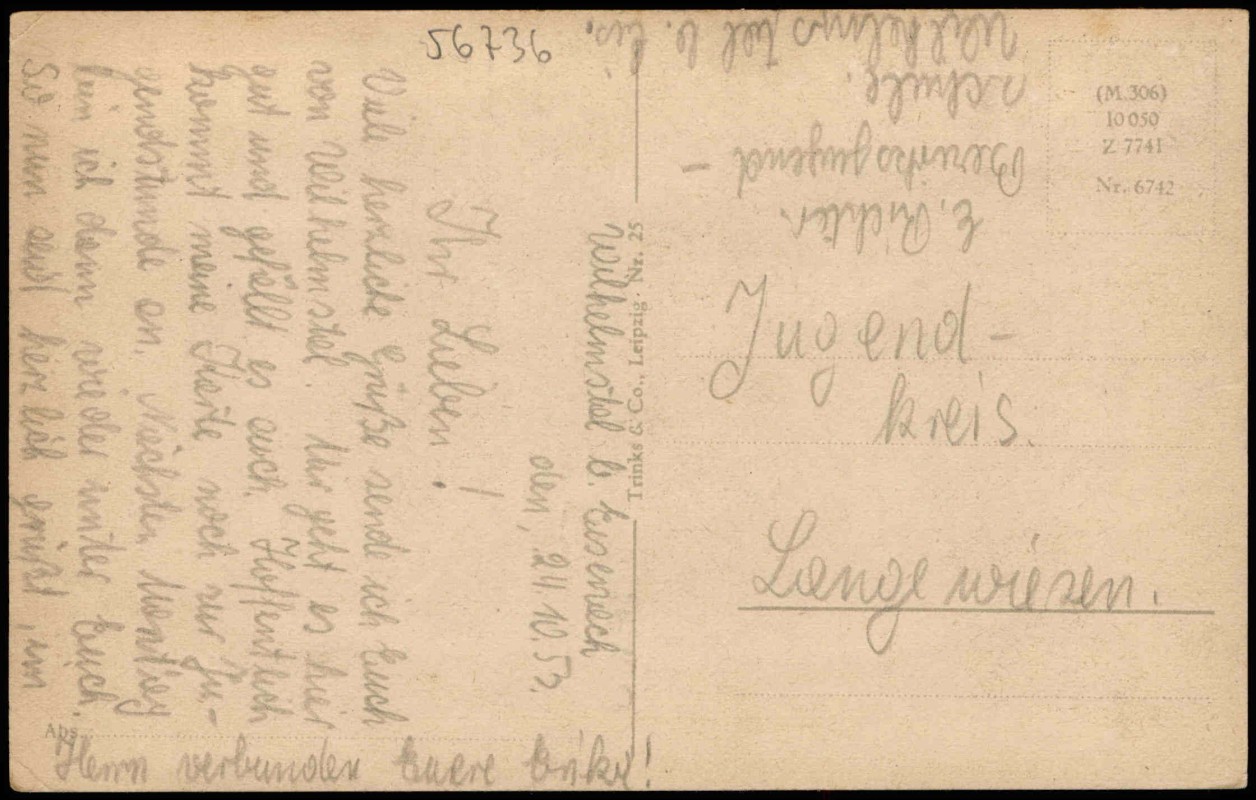 56736
Wilhelmstal b. Eisenach
den, 21.10.53.
Ihr Lieben!
Viele herzliche Grüße sende ich Euch
von Wilhelmstal. Mir geht es hier
gut und gefällt es auch. Hoffentlich
kommt meine Karte noch zur Ju-
gendstunde an. Nächsten Montag
bin ich dann wieder unter Euch.
So nun seid herzlich grüßt, im
Herrn verbunden Euere Erika!
Abs.
Trinks & Co., Leipzig · Nr. 25
E. Richter.
Bezirksjugend-
schule.
Wilhelmstal b. Eis.
(M.306)
10 050
Z 7741
Nr. 6742
Jugend-
kreis.
Langewiesen.